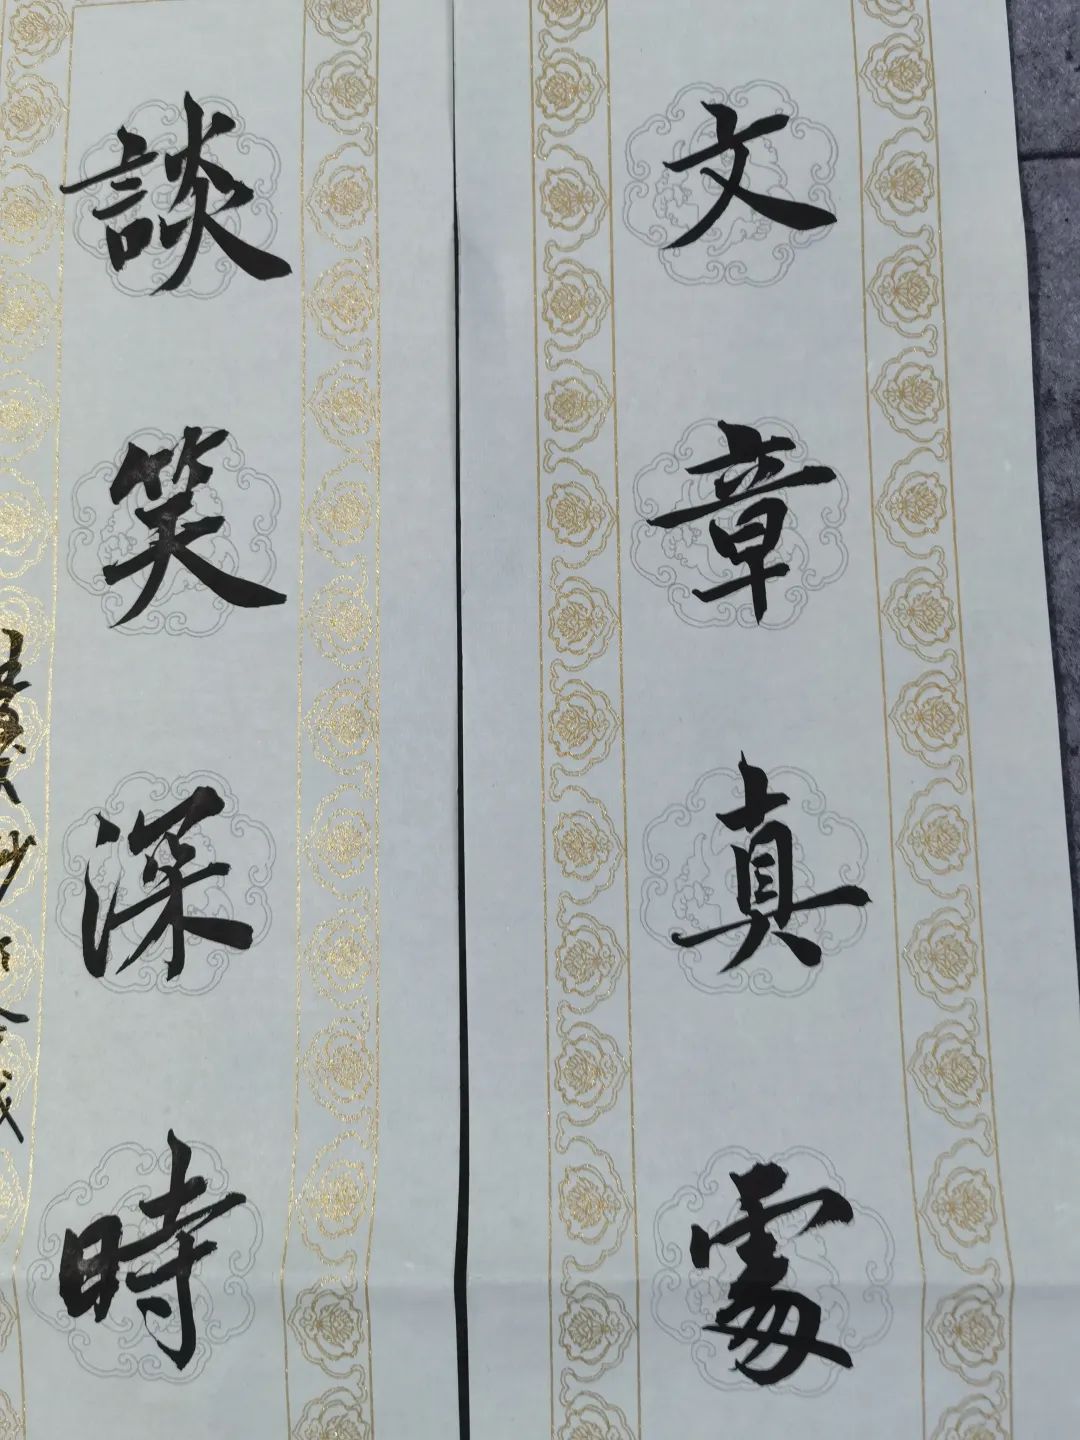 文章真處
談笑深時